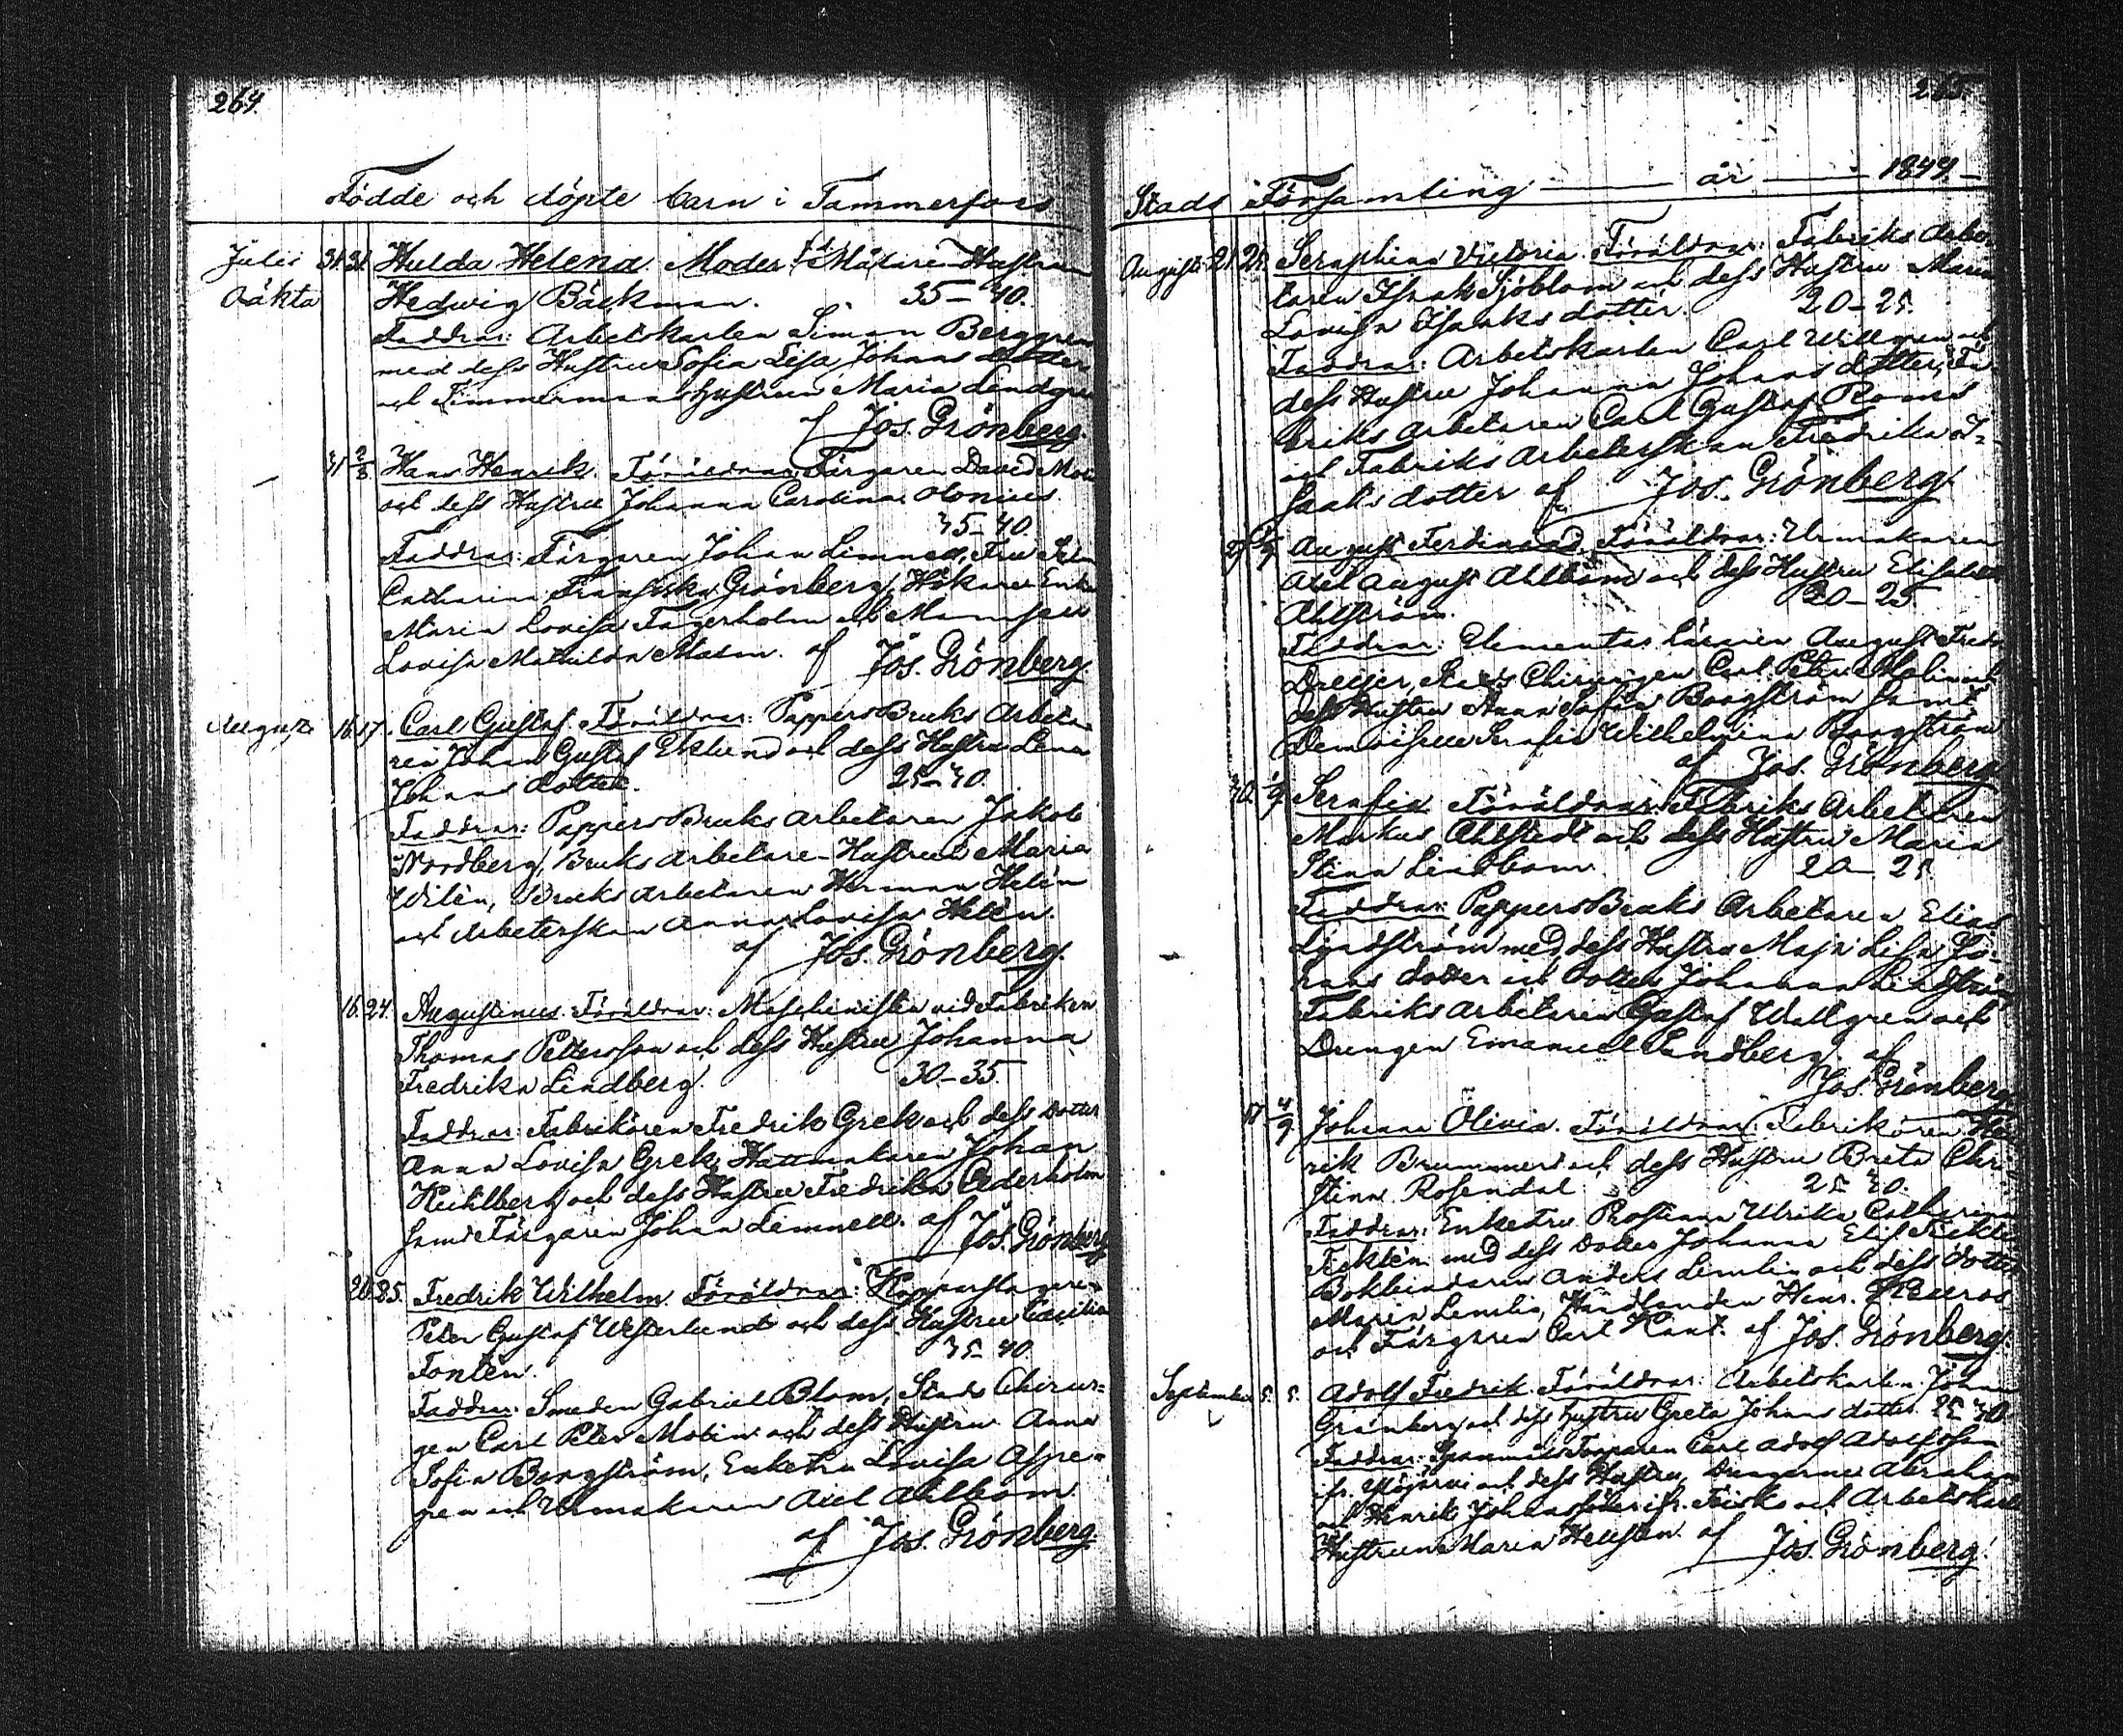 264.
Födde och döpte barn i Tammerfors
Julii 31. 31. Hulda Helena. Moder: Målare Hustrun
Oäkta Hedwig Bäckman. 35–40.
Faddrar: Arbetskarlen Simon Berggren
med dess Hustru Sofia Lisa Johans dotter
och Timmermans hustrun Maria Lindgren
af Jos. Grönberg.
31 2/8 Hans Henrik. Föräldrar: Färgaren David
och dess Hustru Johanna Carolina Olonius
35–40.
Faddrar: Färgaren Johan Limnell, Fru
Catharina Fransiska Grönberg, Hökare Enk
Maria Lovisa Fagerholm och Mamsell
Lovisa Mathilda Malm. af Jos. Grönberg
Augusti 16. 17. Carl Gustaf. Föräldrar: PappersBruks Arbeta
ren Johan Gustaf Eklund och dess Hustru Lena
Johans dotter. 25–30.
Faddrar: PappersBruks arbetaren Jakob
Nordberg, Bruks arbetare-Hustrun Maria
Wilén, Bruks arbetaren Herman Helén
och Arbeterskan Anna Lovisa Helén.
af Jos. Grönberg.
16. 24. Augustinus. Föräldrar: Maschinisten vid Fabriken
Thomas Pettersson och dess Hustru Johanna
Fredrika Lindberg. 30–35.
Faddrar: Fabrikören Fredrik Grek och dess Dotter
Anna Lovisa Grek, Hattmakaren Johan
Kuhlberg och dess Hustru Fredrika Cederholm
samt Färgaren Johan Limnell. af Jos. Grönberg
20. 25. Fredrik Wilhelm. Föräldrar: Kopparslagaren
Peter Gustaf Westerlund och dess Hustru Cecilia
Fontén. 35–40
Faddrar: Smeden Gabriel Blom, Stads Chirur-
gen Carl Peter Molin och dess Hustru Anna
Sofia Borgström, Enkefru Lovisa Aspe-
gren och Urmakaren Axel Ahlbom
af Jos. Grönberg.
265.
Stads Församling — år — 1849.
Augusti 21. 21. Seraphina Victoria. Föräldrar: Fabriks Arbe-
taren Isaak Sjöblom och dess Hustru Maria
Lovisa Isaaks dotter. 20–25.
Faddrar: Arbetskarlen Carl Willgren och
dess Hustru Johanna Johans dotter, Fa-
briks arbetaren Carl Gustaf Roms
och Fabriks Arbeterskan Fredrika I-
saaks dotter af Jos. Grönberg.
August Ferdinand. Föräldrar: Urmakaren
Axel August Ahlbom och dess Hustru Elisabeth
Ahlström. 20–25
Faddrar: Elementar Läraren August Fredr.
Dreijer, Stads Chirurgen Carl Peter Molin och
dess Hustru Anna Sofia Borgström samt
Demoiselle Serafia Wilhelmina Borgström
af Jos. Grönberg.
30. 1/9. Serafia. Föräldrar: Fabriks Arbetaren
Markus Ahlstedt och dess Hustru Maria
Stina Lindbom. 20–25
Faddrar: PappersBruks Arbetaren Elias
Lindström med dess Hustru Maja Lisa Jo-
hans dotter och Dotter Johanna Lindström,
Fabriks Arbetaren Gustaf Wallgren och
Drengen Emanuel Sandberg. af
Jos. Grönberg.
4/9 Johanna Olivia. Föräldrar: Fabrikören Hen
rik Brummer och dess Hustru Breta Chri-
stina Rosendal. 25–30.
Faddrar: Enkefru Prostinna Ulrika Catharina
Ticklén med dess Dotter Johanna
Bokbindaren Anders Lemlin och dess Dotter
Maria Lemlin, Handlanden Henr.
och Färgaren Carl af Jos. Grönberg.
September 5. 5. Adolf Fredrik. Föräldrar: Arbetskarlen Johan
Grönberg och dess hustru Greta Johans dotter. 25–30
Faddrar: Torparen Carl Adolf Adolfsson
ifr. Ylöjärvi och dess Hustru, Drengarne Abraham
och Henrik Johanssöner ifr. och Arbetskarls
Hustrun Maria Hellsten. af Jos. Grönberg.